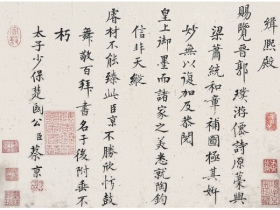 緝熙殿
賜覽晉郭璞游僊詩原藁與
梁蕭統和章補圖極其妍
妙無以復加及恭閱
皇上御墨而諸家之美悉就陶鈞
信非天縱
睿材不能臻此臣京不勝欣忭鼓
舞敬百拜書名于後附垂不
朽
太子少保楚國公臣蔡京